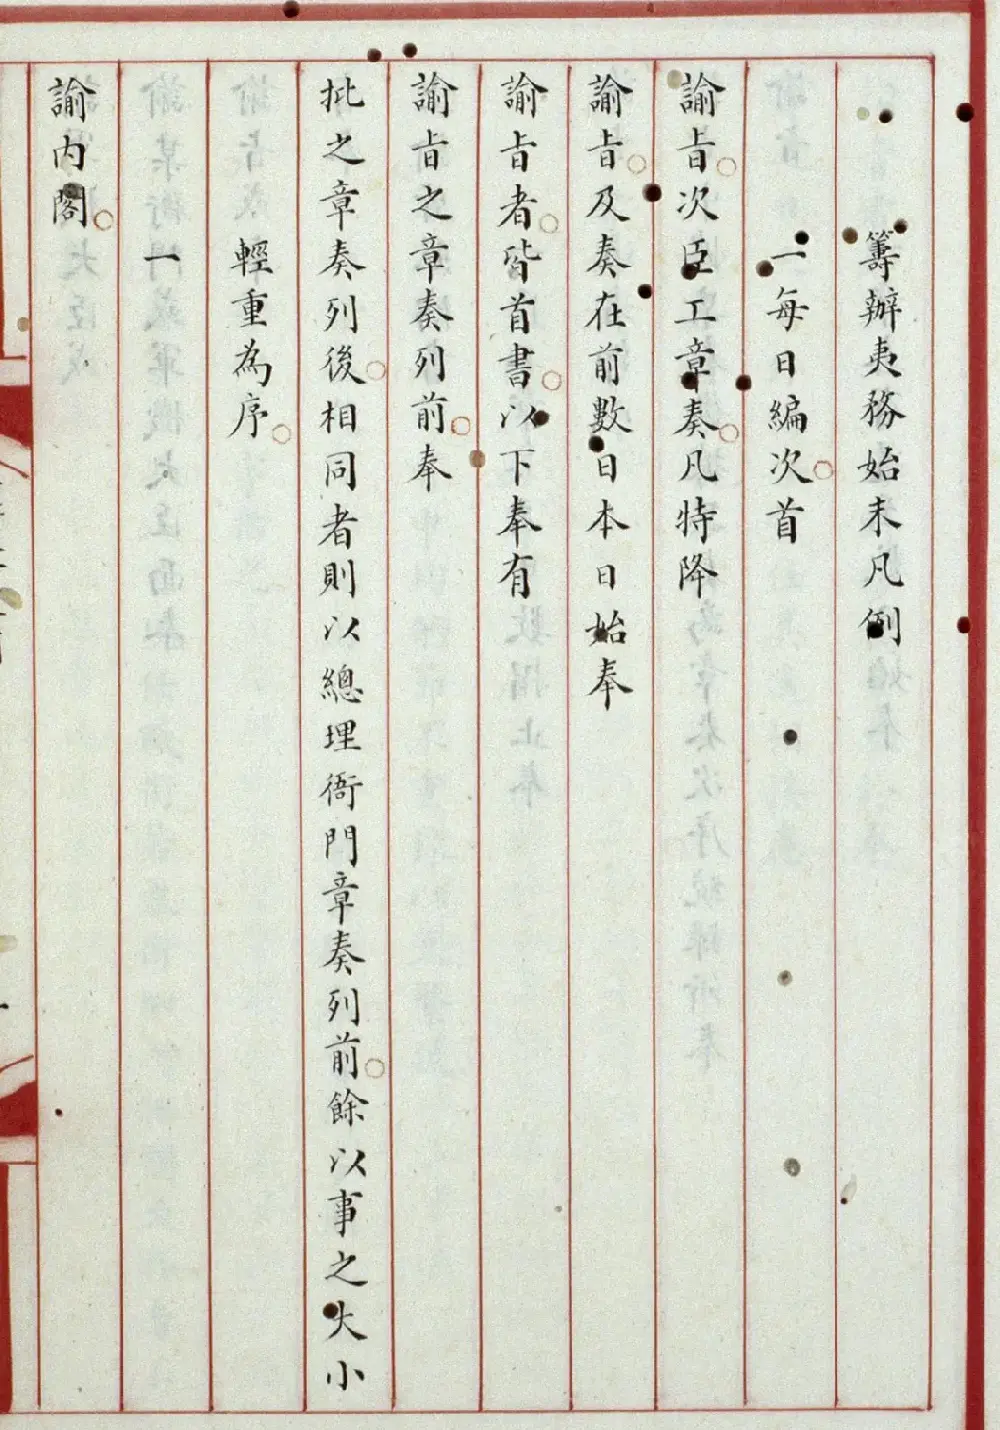 籌辦夷務始末凡例
一每日編次首
諭旨次臣工章奏凡特降
諭旨及奏在前數日本日始奉
諭旨者皆首書以下奉有
諭旨之章奏列前奉
批之章奏列後相同者則以總理衙門章奏列前餘以事之大小
輕重為序
一
諭內閣